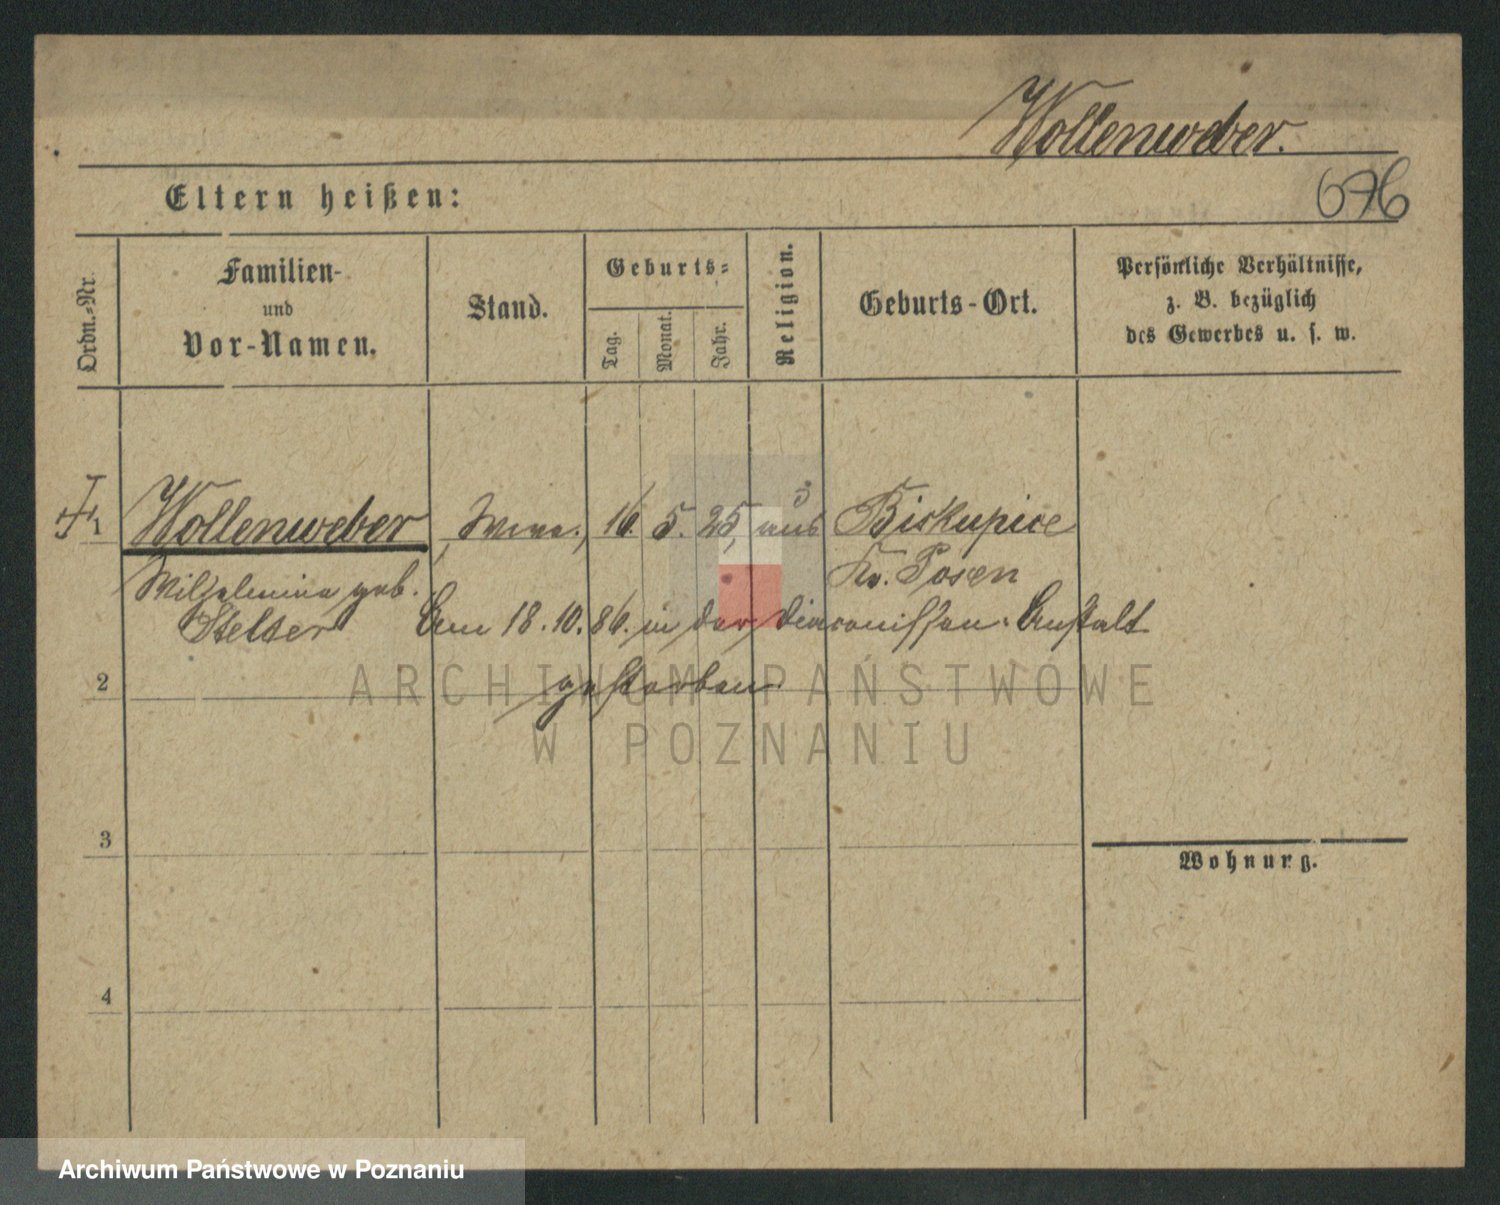 Wollenweber.
676
Eltern heißen:
Ordn.-Nr.
Familien-
und
Vor-Namen.
Stand.
Geburts-
Tag.
Monat.
Jahr.
Religion.
Geburts-Ort.
Persönliche Verhältnisse,
z. B. bezüglich
des Gewerbes u. s. w.
1 Wollenweber, Wwe., 16. 5. 25, aus Biskupice
Wilhelmine geb. Kr. Posen
Stelter Am 18.10.86. in der Diaconissen-Anstalt
2 gestorben.
ARCHIWUM PAŃSTWOWE
W POZNANIU
3
Wohnung.
4
Archiwum Państwowe w Poznaniu